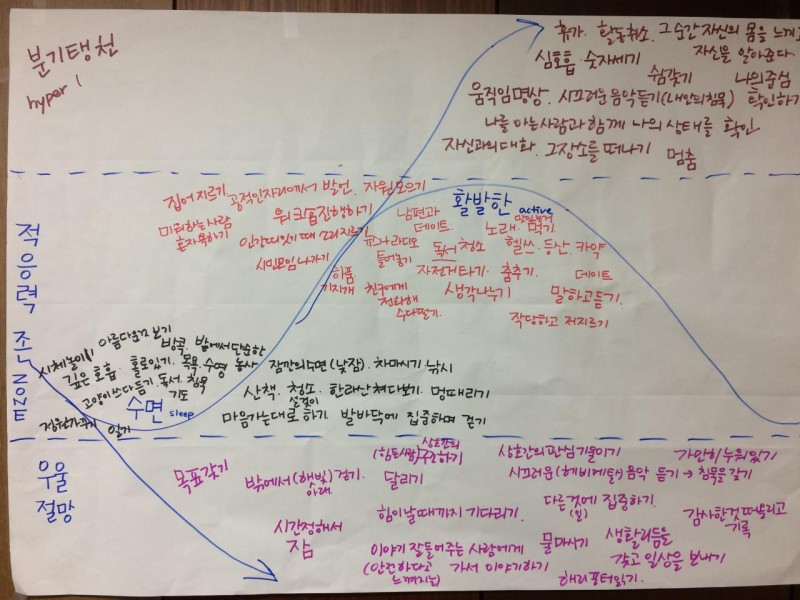 분기탱천
hyper
휴가. 활동취소. 그 순간 자신의 몸을 느끼고
심호흡. 숫자세기
자신을 알아준다
쉼갖기
나의 중심
확인하기
움직임명상. 시끄러운 음악듣기(내안의 침묵)
나를 아는 사람과 함께 나의 상태를 확인
자신과의 대화. 그 장소를 떠나기
멈춤
적응력 존 ZONE
집어지르기
공적인자리에서 발언.
자원모으기
활발한 active
미워하는 사람
혼자 욕하기
워크숍진행하기
남편과
데이트.
노래.
먹기.
인간띠잇기 때 소리지르기
뉴스나 라디오
틀어놓기
독서
청소
헬쓰. 등산. 카약
시민모임 나가기
하품
기지개
자전거타기. 춤추기.
데이트
친구에게
전화해
수다떨기.
생각나누기
말하고듣기.
작당하고 저지르기
시체놀이
아름다운꼬 보기
방콕.
밭에서 단순한
농사
깊은 호흡. 홀로있기. 목욕. 수영
고양이 쓰다듬기. 독서. 침묵
기도
정원가꾸기
일기
수면 sleep
잠깐의 수면(낮잠). 차마시기. 낚시
산책. 청소. 한라산 쳐다보기. 멍때리기
설겆이
마음가는대로 하기. 발바닥에 집중하며 걷기
우울
절망
목표갖기
밖에서(햇빛) 걷기.
아래
상호간의
달리기
상호간의 관심 기울이기
가만히 누워있기
시끄러운(헤비메탈) 음악 듣기 → 침묵을 갖기
시간정해서
잠
힘이 날때까지 기다리기.
다른것에 집중하기.
(일)
감사한것 떠올리고
기록
이야기 잘들어주는 사람에게
(안전하다고
느껴지는)
가서 이야기하기
물마시기
생활리듬을
갖고 일상을 보내기
해리포터읽기.